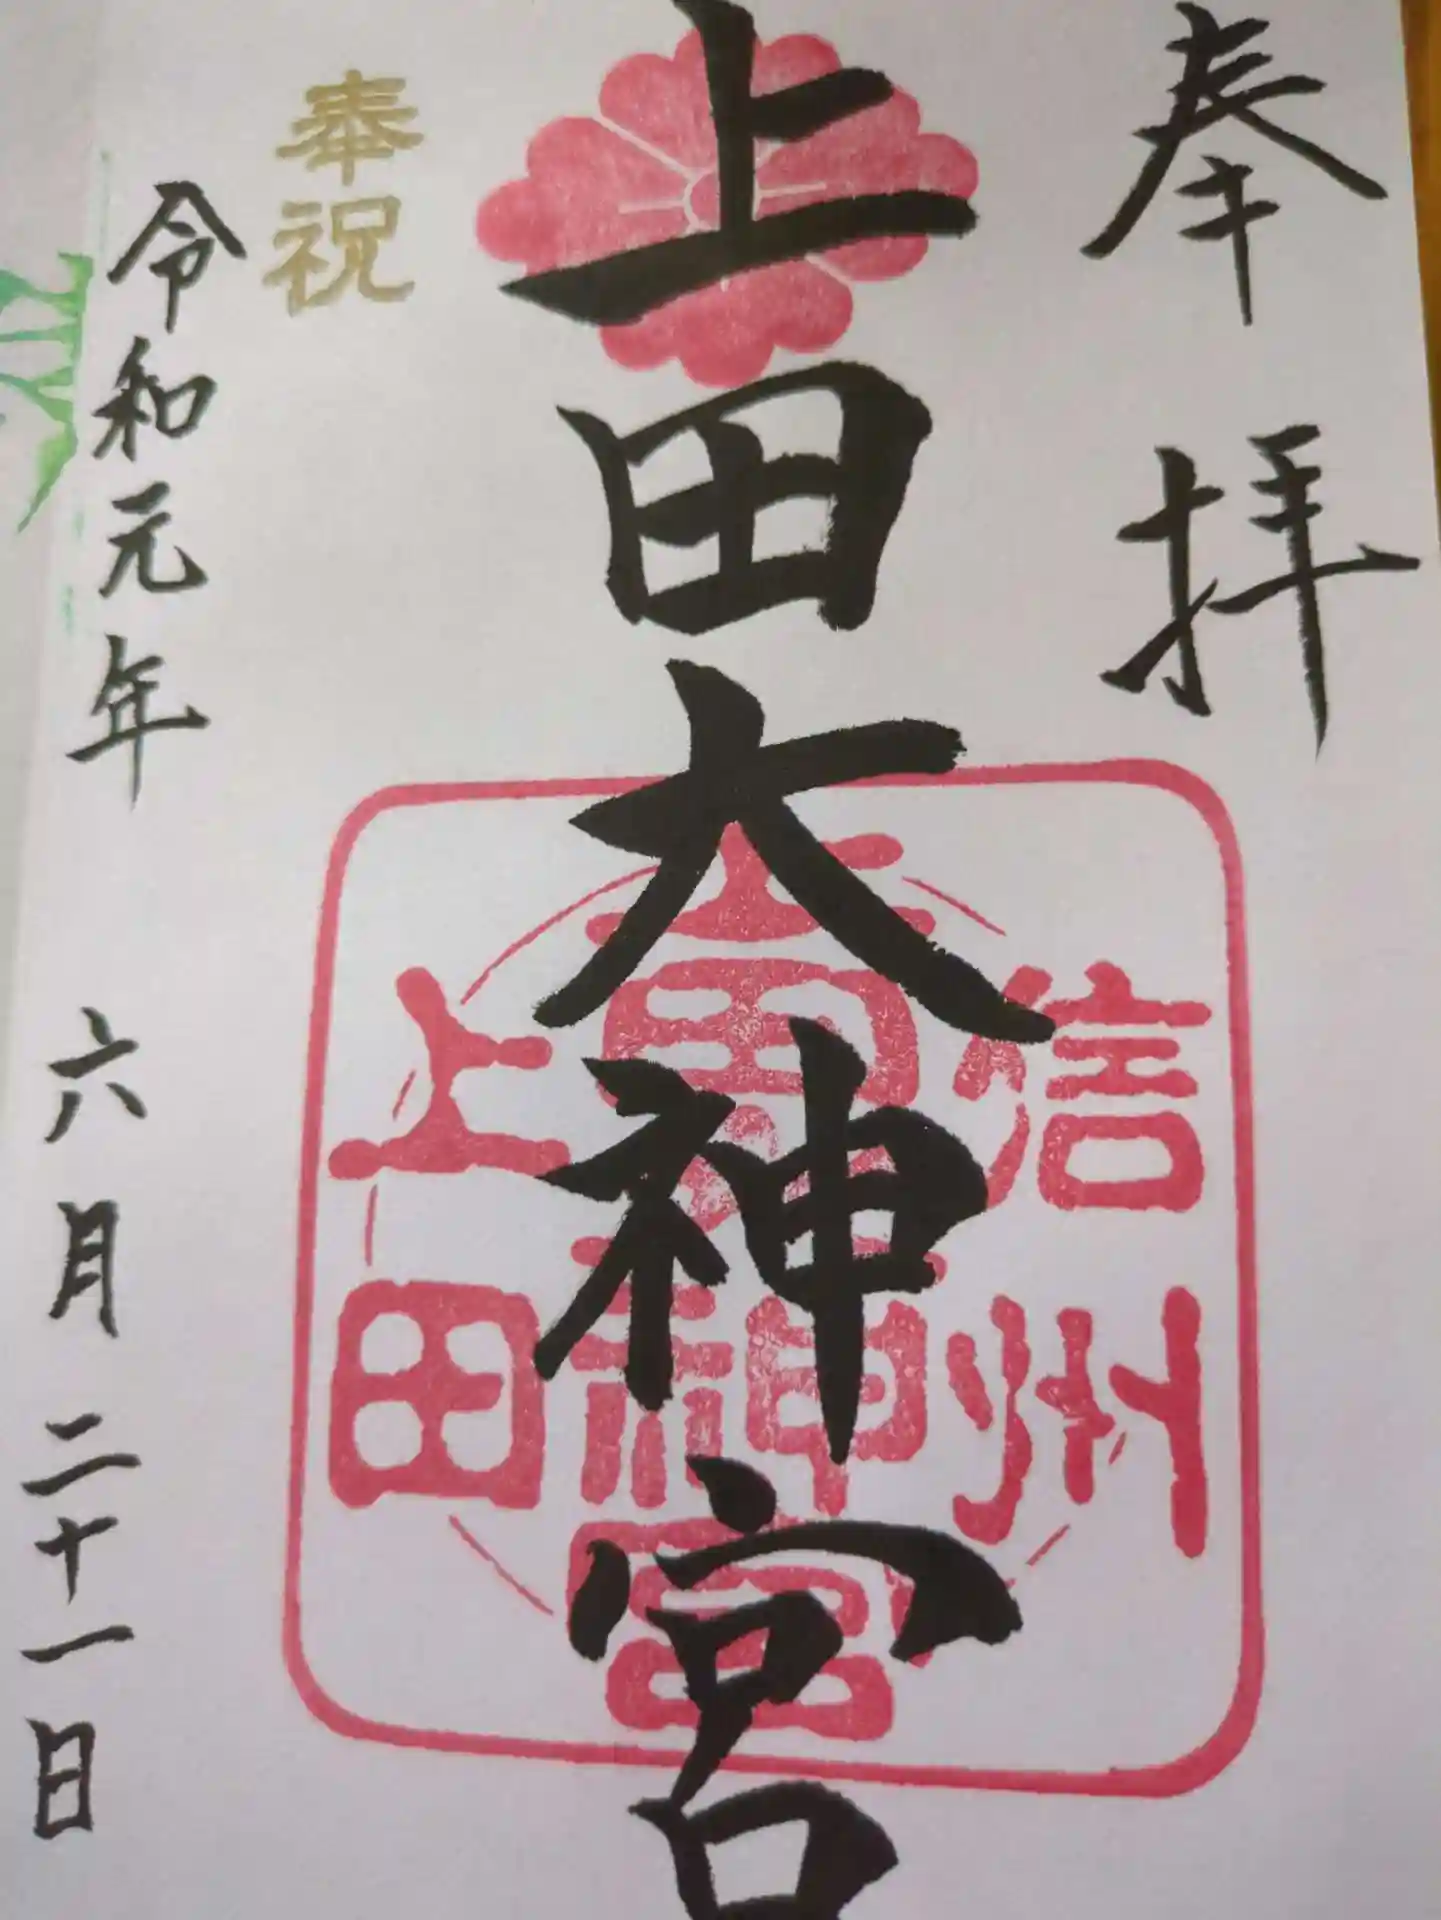 奉拝
上田大神宮
信州
上田
奉祝
令和元年 六月二十一日